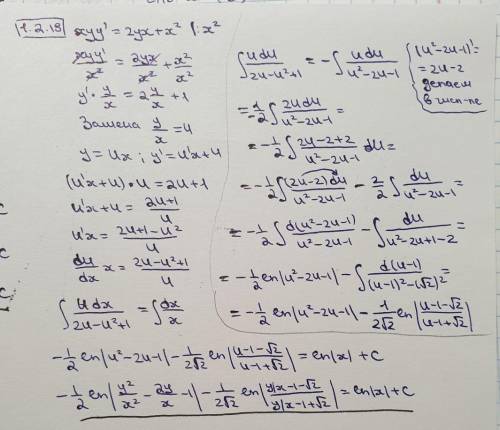 1.2.19 xyy' = 2yx + x² |: x²
xyy'/x² = 2yx/x² + x²/x²
y' · y/x = 2y/x + 1
Замена y/x = u
y = ux ; y' = u'x + u
(u'x + u) · u = 2u + 1
u'x + u = (2u + 1)/u
u'x = (2u + 1 - u²)/u
du/dx x = (2u - u² + 1)/u
∫ u dx/(2u - u² + 1) = ∫ dx/x
∫ u du/(2u - u² + 1) = - ∫ u du/(u² - 2u - 1) =
(u² - 2u - 1)' =
= 2u - 2
делаем
в числ-ле
= 1/-2 ∫ 2u du/(u² - 2u - 1) =
= - 1/2 ∫ (2u - 2 + 2)/(u² - 2u - 1) du =
= - 1/2 ∫ (2u - 2) du/(u² - 2u - 1) - 2/2 ∫ du/(u² - 2u - 1) =
= - 1/2 ∫ d(u² - 2u - 1)/(u² - 2u - 1) - ∫ du/(u² - 2u + 1 - 2) =
= - 1/2 ln|u² - 2u - 1| - ∫ d(u - 1)/((u - 1)² - (√2)²) =
= - 1/2 ln|u² - 2u - 1| - 1/(2√2) ln|(u - 1 - √2)/(u - 1 + √2)|
- 1/2 ln|u² - 2u - 1| - 1/(2√2) ln|(u - 1 - √2)/(u - 1 + √2)| = ln|x| + C
- 1/2 ln|y²/x² - 2y/x - 1| - 1/(2√2) ln|(y/x - 1 - √2)/(y/x - 1 + √2)| = ln|x| + C